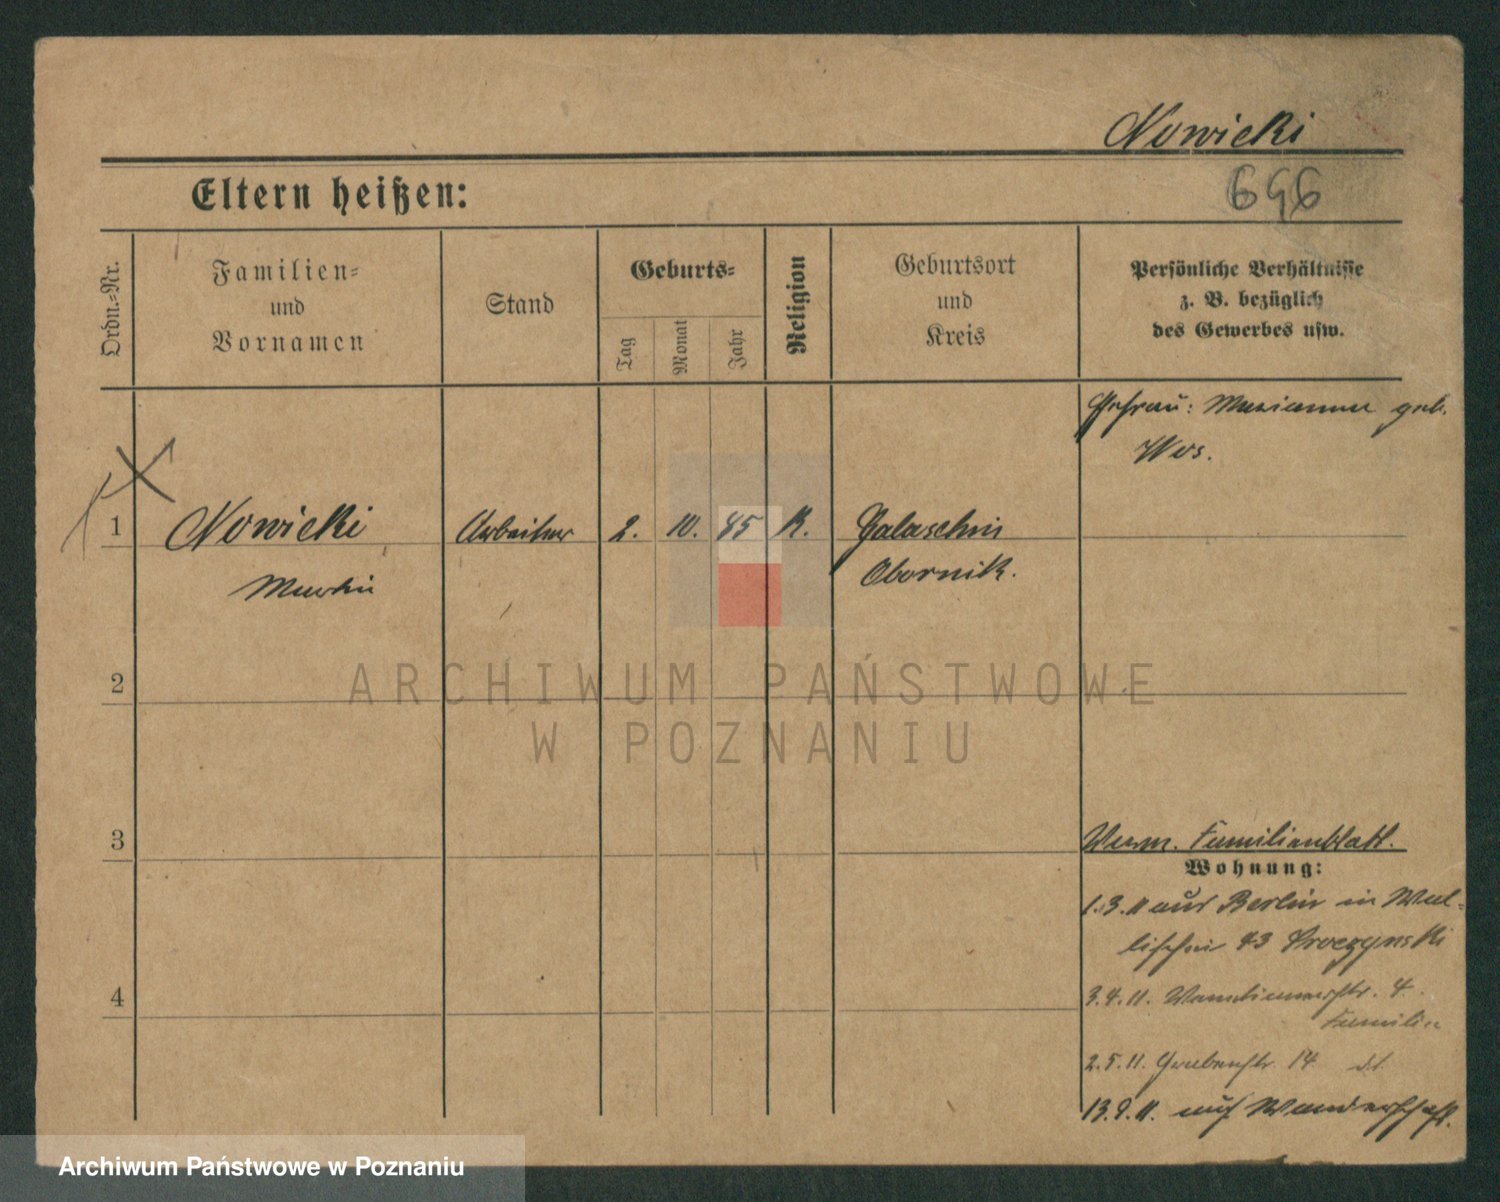 Nowicki
Eltern heißen:
696
Ordn.-Nr.
Familien-
und
Vornamen
Stand
Geburts-
Tag
Monat
Jahr
Religion
Geburtsort
und
Kreis
Persönliche Verhältnisse
z. B. bezüglich
des Gewerbes usw.
Ehefrau: Marianna geb.
Wos.
1 Nowicki Arbeiter 2. 10. 85 K.
Obornik.
Martin
2
3
Verm. Familienblatt.
Wohnung:
1.3.11 aus Berlin in Wal-
lischei 43
4
3.4.11. 4.
Familie
2.5.11. Grabenstr. 14
13.9.11. auf Wanderschaft.
ARCHIWUM PAŃSTWOWE
W POZNANIU
Archiwum Państwowe w Poznaniu